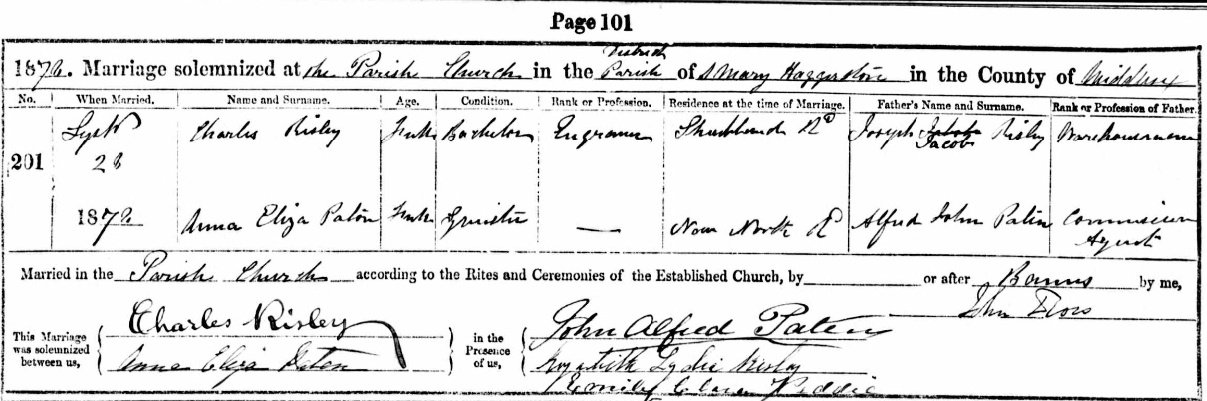 Page 101
District
1876. Marriage solemnized at the Parish Church in the Parish of S Mary Haggerston in the County of Middlesex
No. When Married. Name and Surname. Age. Condition. Rank or Profession. Residence at the time of Marriage. Father's Name and Surname. Rank or Profession of Father.
201 Septr 28 1876 Charles Risley Bachelor Engraver Shrubland Rd Joseph Jacob Risley Warehouseman
Anna Eliza Paton Spinster — New North Rd Alfred John Paton Commission Agent
Married in the Parish Church according to the Rites and Ceremonies of the Established Church, by or after Banns by me,
John
This Marriage was solemnized between us, { Charles Risley } in the Presence of us, { John Alfred Paton
Anna Eliza Paton Lydia Risley
Emily Clara